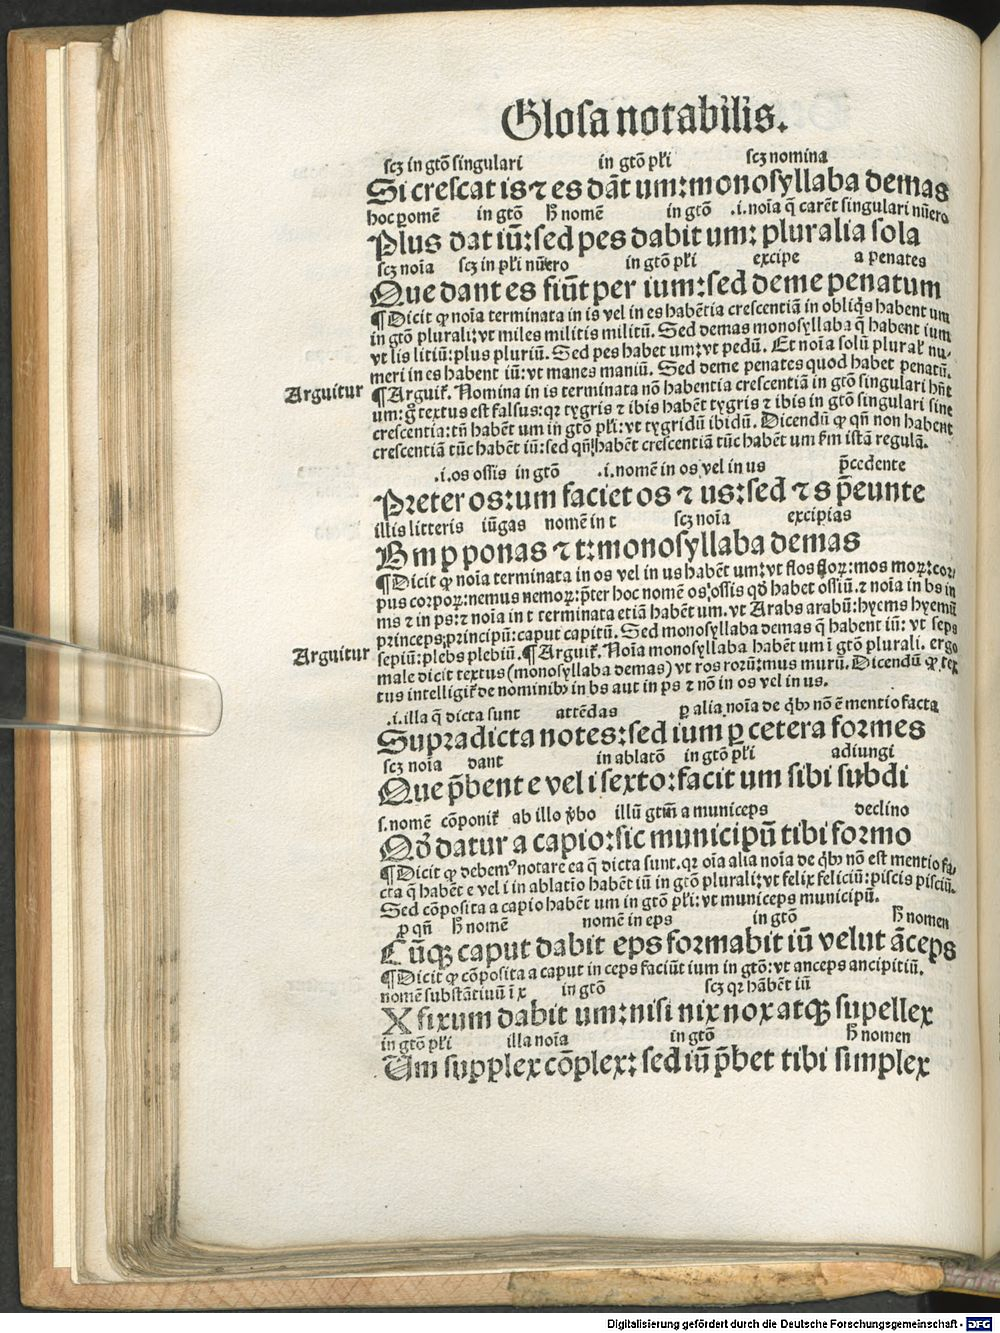 Glosa notabilis.
scȝ in gtō singulari in gtō pl̄i scȝ nomina
Si crescat is ⁊ es dāt um: monosyllaba demas
hoc ꝓomē in gtō h̄ nomē in gtō .i. noīa q̄ carēt singulari nūero
Plus dat iū: sed pes dabit um: pluralia sola
scȝ noīa scȝ in pl̄i nūero in gtō pl̄i excipe a penates
Que dant es fiūt per ium: sed deme penatum
¶ Dicit ꝙ noīa terminata in is vel in es habētia crescentiā in obliq̄s habent um
in gtō plurali: vt miles militis militū. Sed demas monosyllaba q̄ habent ium
vt lis litiū: plus pluriū. Sed pes habet um: vt pedū. Et noīa solū plural̄ nu-
meri in es habent iū: vt manes maniū. Sed deme penates quod habet penatū.
Arguitur ¶ Arguit̄. Nomina in is terminata nō habentia crescentiā in gtō singulari hn̄t
um: g̊ textus est falsus: qꝛ tygris ⁊ ibis habēt tygris ⁊ ibis in gtō singulari sine
crescentia: tn̄ habēt um in gtō pl̄i: vt tygridū ibidū. Dicendū ꝙ qn̄ non habent
crescentiā tūc habēt iū: sed qn̄ habēt crescentiā tūc habēt um ẜm istā regulā.
.i. os ossis in gtō .i. nomē in os vel in us p̄cedente
Preter os: um faciet os ⁊ us: sed ⁊ s p̄eunte
illis litteris iūgas nomē in t scȝ noīa excipias
B m p ponas ⁊ t: monosyllaba demas
¶ Dicit ꝙ noīa terminata in os vel in us habēt um: vt flos floꝝ: mos moꝝ: cor-
pus corpoꝝ: nemus nemoꝝ: p̄ter hoc nomē os ossis qd̄ habet ossiū. ⁊ noīa in bs in
ms ⁊ in ps: ⁊ noīa in t terminata etiā habēt um. vt Arabs arabū: hyems hyemū
princeps principū: caput capitū. Sed monosyllaba demas q̄ habent iū: vt seps
Arguitur sepiū: plebs plebiū. ¶ Arguit̄. Noīa monosyllaba habēt um ī gtō plurali. ergo
male dicit textus (monosyllaba demas) vt ros rorū: mus murū. Dicendū ꝙ tex
tus intelligit̄ de nominibꝰ in bs aut in ps ⁊ nō in os vel in us.
.i. illa q̄ dicta sunt attēdas ꝑ alia noīa de q̄bꝰ nō ē mentio facta
Supradicta notes: sed ium ꝑ cetera formes
scȝ noīa dant in ablatō in gtō pl̄i adiungi
Que p̄bent e vel i sexto: facit um sibi subdi
s. nomē cōponit̄ ab illo v̄bo illū gtm̄ a municeps declino
Qd̄ datur a capio: sic municipū tibi formo
¶ Dicit ꝙ debemꝰ notare ea q̄ dicta sunt. qꝛ oīa alia noīa de q̄bꝰ nō est mentio fa-
cta q̄ habēt e vel i in ablatio habēt iū in gtō plurali: vt felix feliciū: piscis pisciū.
Sed cōposita a capio habēt um in gtō pl̄i: vt municeps municipū.
ꝓ qn̄ h̄ nomē nomē in eps in gtō h̄ nomen
Cūqꝫ caput dabit eps formabit iū velut āceps
¶ Dicit ꝙ cōposita a caput in ceps faciūt ium in gtō: vt anceps ancipitiū.
nomē substātiuū ī x in gtō scȝ qꝛ hābēt iū
X fixum dabit um: nisi nix nox atqꝫ supellex
in gtō pl̄i illa noīa in gtō h̄ nomen
Um supplex cōplex: sed iū p̄bet tibi simplex
Digitalisierung gefördert durch die Deutsche Forschungsgemeinschaft - DFG